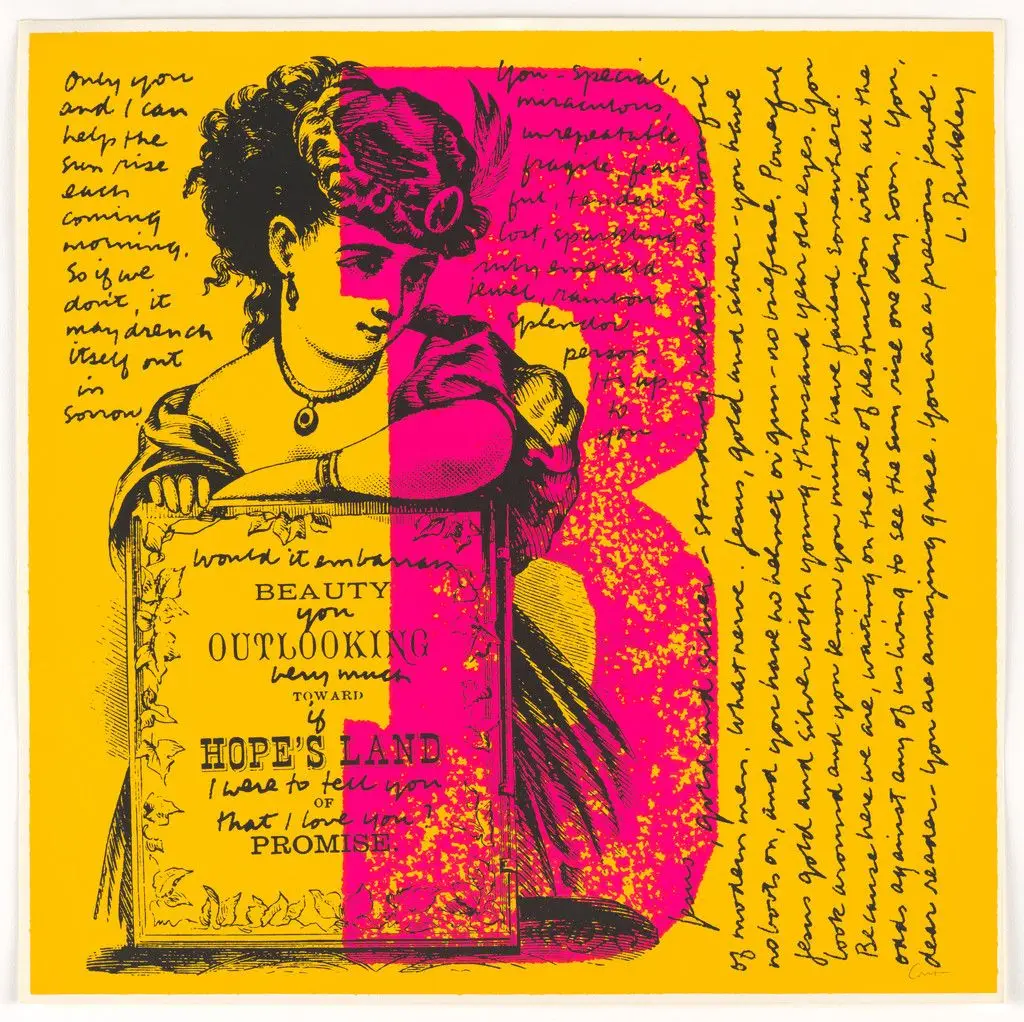 Only you
and I can
help the
sun rise
each
coming
morning.
So if we
don't, it
may drench
itself out
in
sorrow.
You-special,
miraculous,
unrepeatable,
fragile, fear-
ful, tender,
lost, sparkling
ruby emerald
jewel, rainbow
splendor
person.
It's up
to
you
would it embarrass
BEAUTY
you
OUTLOOKING
very much
TOWARD
if
HOPE'S LAND
I were to tell you
OF
that I love you?
PROMISE.
Jesus gold and silver-standing naked in a room full
of modern men. What nerve. Jesus, gold and silver-you have
no boots on, and you have no helmet or gun-no briefcase. Powerful
Jesus gold and silver with young, thousand year old eyes. You
look around and you know you must have failed somewhere.
Because here we are, waiting on the eve of destruction with all the
odds against any of us living to see the sun rise one day soon. You,
dear reader-you are amazing grace. You are a precious jewel.
L. Buckley